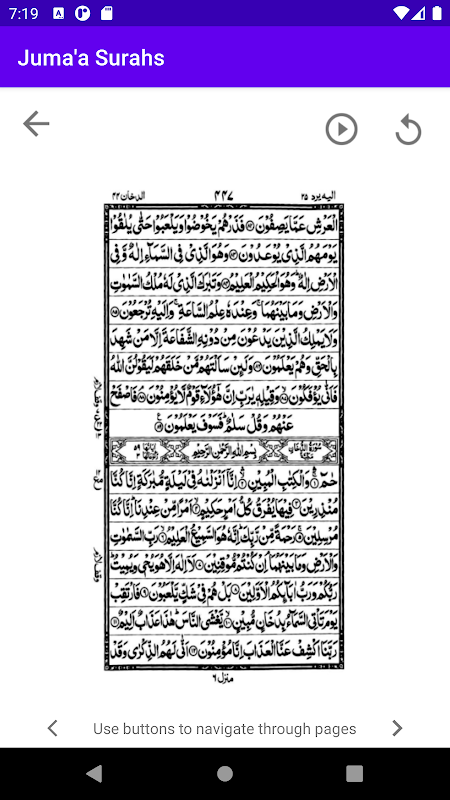 7:19
Juma'a Surahs
الدخان ۴۴ ۴۴۷ الیہ یرد ۲۵
الْعَرْشِ عَمَّا يَصِفُوْنَ فَذَرْهُمْ يَخُوْضُوْا وَيَلْعَبُوْا حَتّٰى يُلٰقُوْا
يَوْمَهُمُ الَّذِيْ يُوْعَدُوْنَ وَهُوَ الَّذِيْ فِي السَّمَآءِ اِلٰهٌ وَّفِي
الْاَرْضِ اِلٰهٌ وَهُوَ الْحَكِيْمُ الْعَلِيْمُ وَتَبٰرَكَ الَّذِيْ لَهٗ مُلْكُ السَّمٰوٰتِ
وَالْاَرْضِ وَمَا بَيْنَهُمَا وَعِنْدَهٗ عِلْمُ السَّاعَةِ وَاِلَيْهِ تُرْجَعُوْنَ
وَلَا يَمْلِكُ الَّذِيْنَ يَدْعُوْنَ مِنْ دُوْنِهِ الشَّفَاعَةَ اِلَّا مَنْ شَهِدَ
بِالْحَقِّ وَهُمْ يَعْلَمُوْنَ وَلَئِنْ سَاَلْتَهُمْ مَّنْ خَلَقَهُمْ لَيَقُوْلُنَّ اللّٰهُ
فَاَنّٰى يُؤْفَكُوْنَ وَقِيْلِهٖ يٰرَبِّ اِنَّ هٰٓؤُلَآءِ قَوْمٌ لَّا يُؤْمِنُوْنَ فَاصْفَحْ
عَنْهُمْ وَقُلْ سَلٰمٌ فَسَوْفَ يَعْلَمُوْنَ
بِسْمِ اللّٰهِ الرَّحْمٰنِ الرَّحِيْمِ
حٰمٓ وَالْكِتٰبِ الْمُبِيْنِ اِنَّآ اَنْزَلْنٰهُ فِيْ لَيْلَةٍ مُّبٰرَكَةٍ اِنَّا كُنَّا
مُنْذِرِيْنَ فِيْهَا يُفْرَقُ كُلُّ اَمْرٍ حَكِيْمٍ اَمْرًا مِّنْ عِنْدِنَا اِنَّا كُنَّا
مُرْسِلِيْنَ رَحْمَةً مِّنْ رَّبِّكَ اِنَّهٗ هُوَ السَّمِيْعُ الْعَلِيْمُ رَبِّ السَّمٰوٰتِ
وَالْاَرْضِ وَمَا بَيْنَهُمَا اِنْ كُنْتُمْ مُّوْقِنِيْنَ لَآ اِلٰهَ اِلَّا هُوَ يُحْيٖ وَيُمِيْتُ
رَبُّكُمْ وَرَبُّ اٰبَآئِكُمُ الْاَوَّلِيْنَ بَلْ هُمْ فِيْ شَكٍّ يَّلْعَبُوْنَ فَارْتَقِبْ
يَوْمَ تَاْتِي السَّمَآءُ بِدُخَانٍ مُّبِيْنٍ يَّغْشَى النَّاسَ هٰذَا عَذَابٌ اَلِيْمٌ
رَبَّنَا اكْشِفْ عَنَّا الْعَذَابَ اِنَّا مُؤْمِنُوْنَ اَنّٰى لَهُمُ الذِّكْرٰى وَقَدْ
منزل ۶
Use buttons to navigate through pages